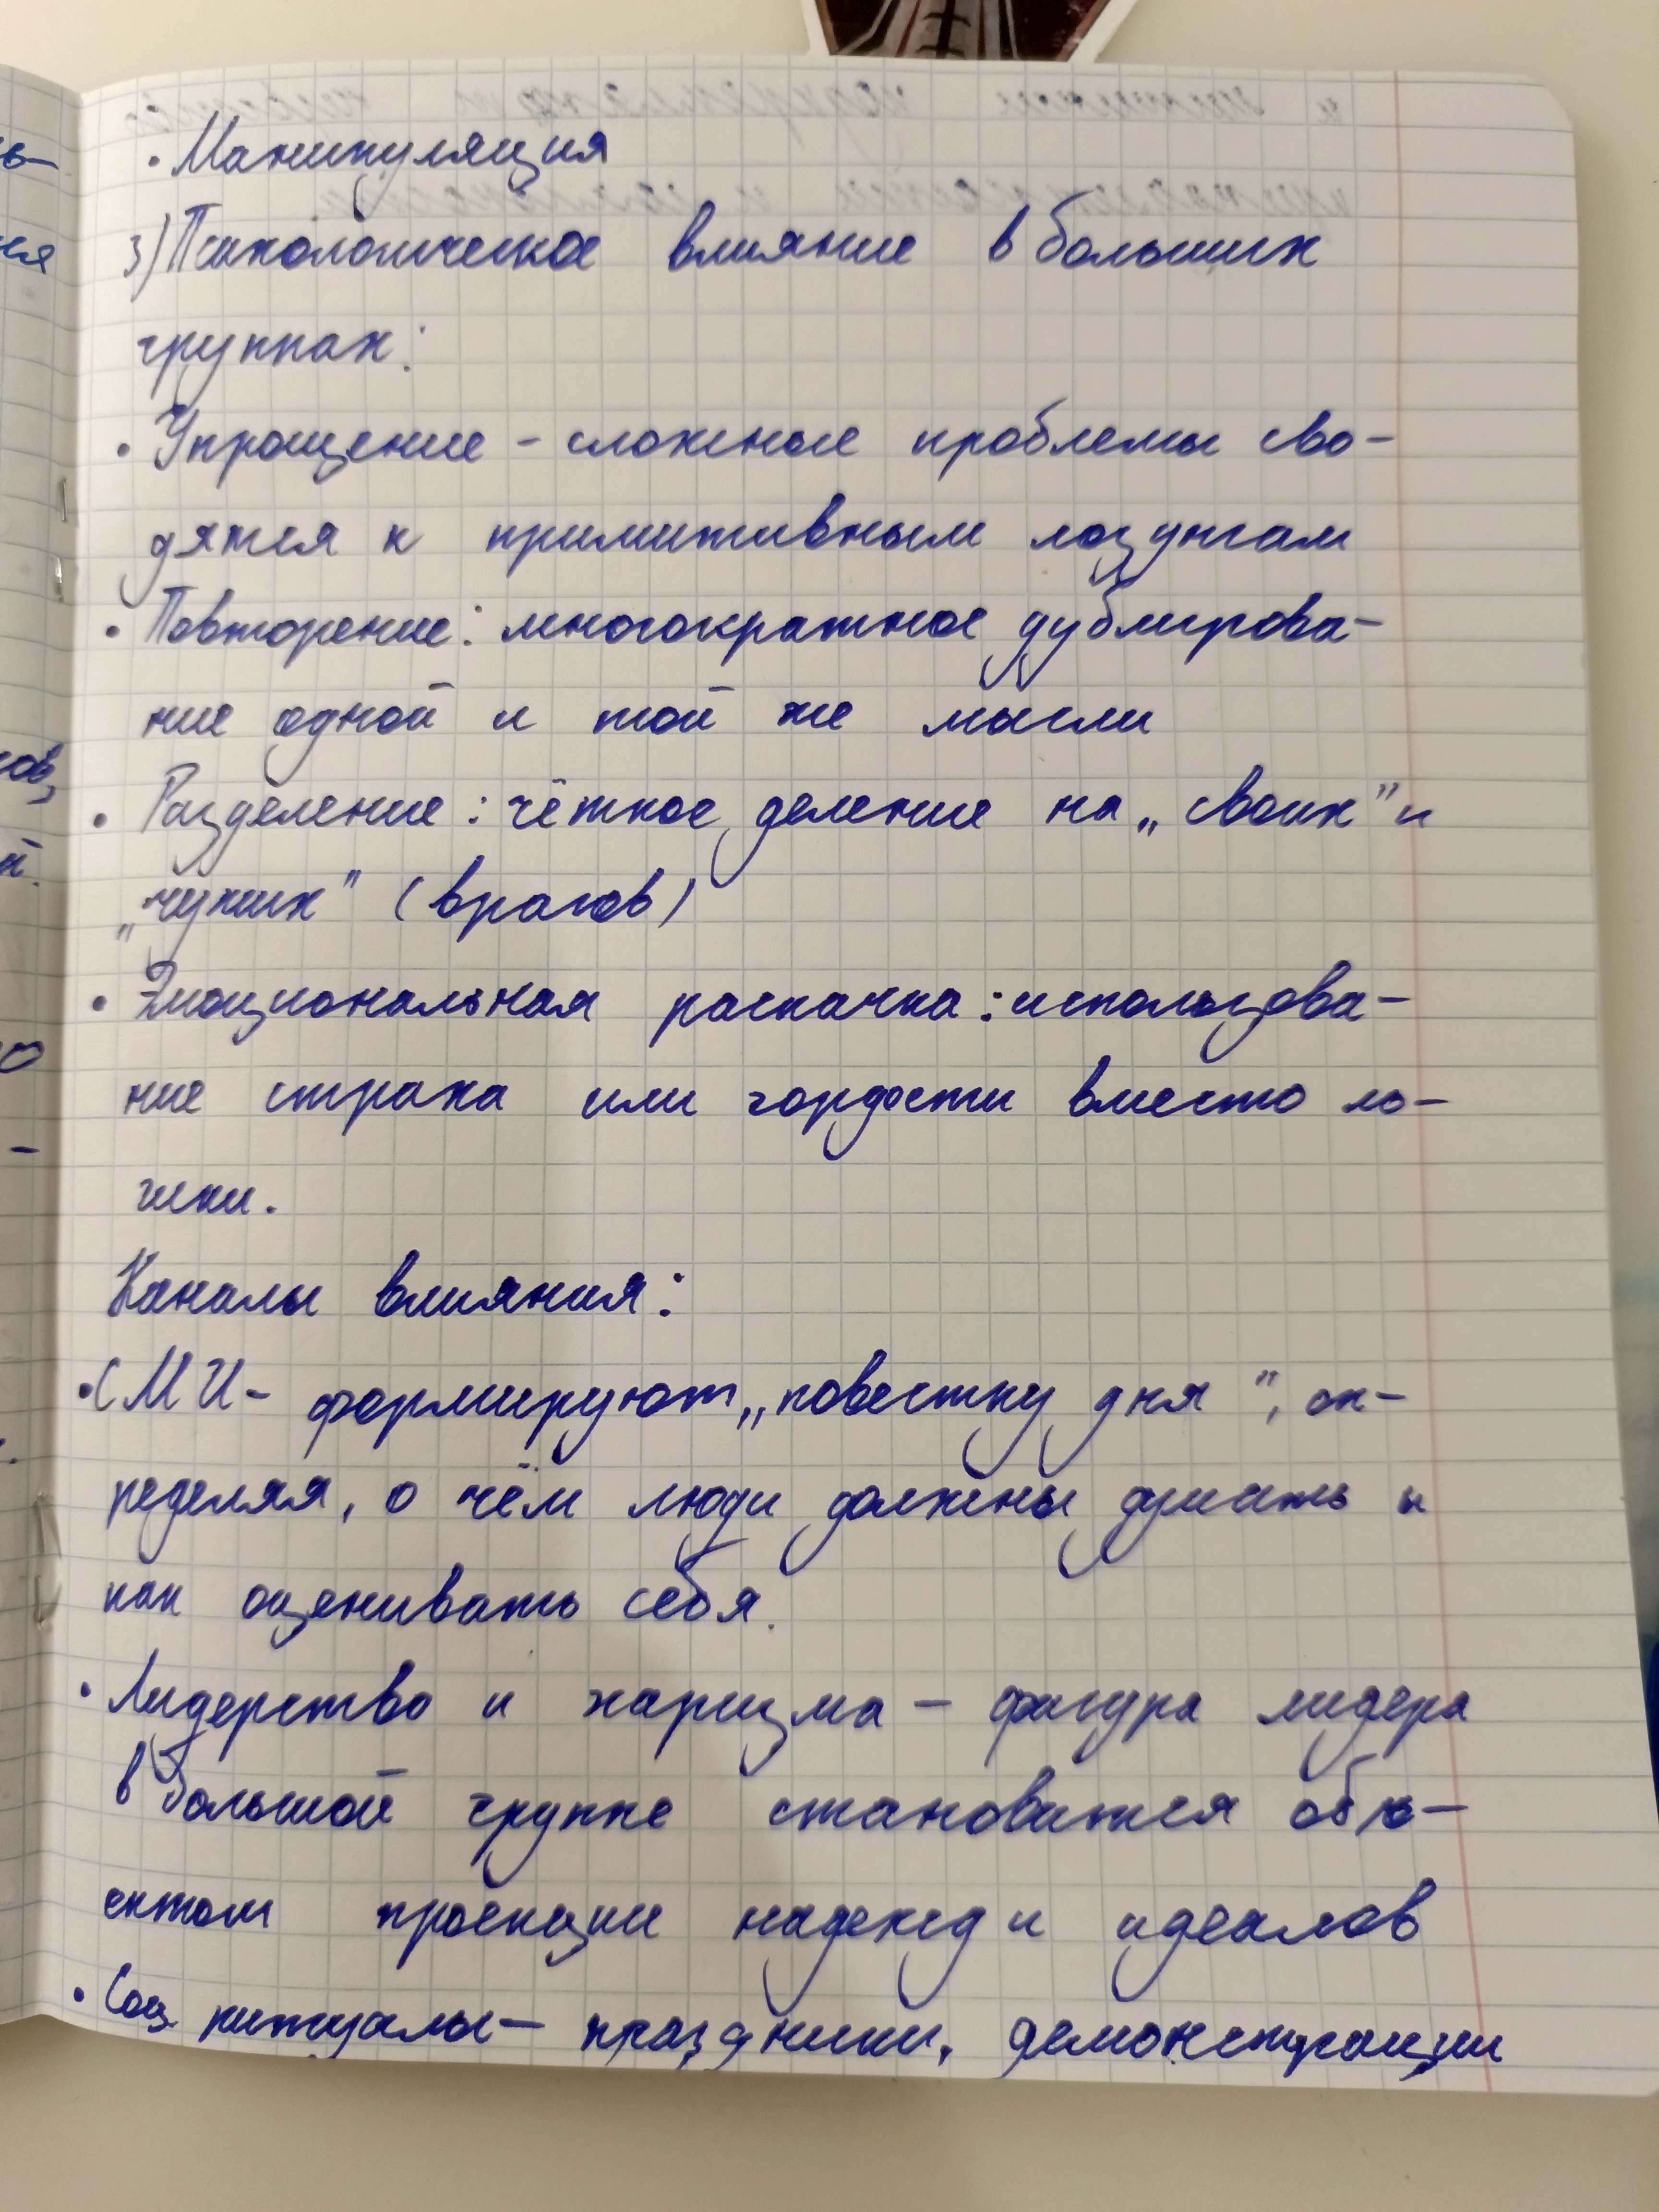 • Манипуляция
3) Психологическое влияние в больших
группах:
• Упрощение - сложные проблемы сво-
дятся к примитивным лозунгам
• Повторение: многократное дублирова-
ние одной и той же мысли
• Разделение: чёткое деление на „своих" и
„чужих" (врагов)
• Эмоциональная раскачка: использова-
ние страха или гордости вместо ло-
гики.
Каналы влияния:
• СМИ - формируют „повестку дня", оп-
ределяя, о чём люди должны думать и
как оценивать себя.
• Лидерство и харизма - фигура лидера
в большой группе становится объ-
ектом проекции надежд и идеалов
• Соц. ритуалы - праздники, демонстрации